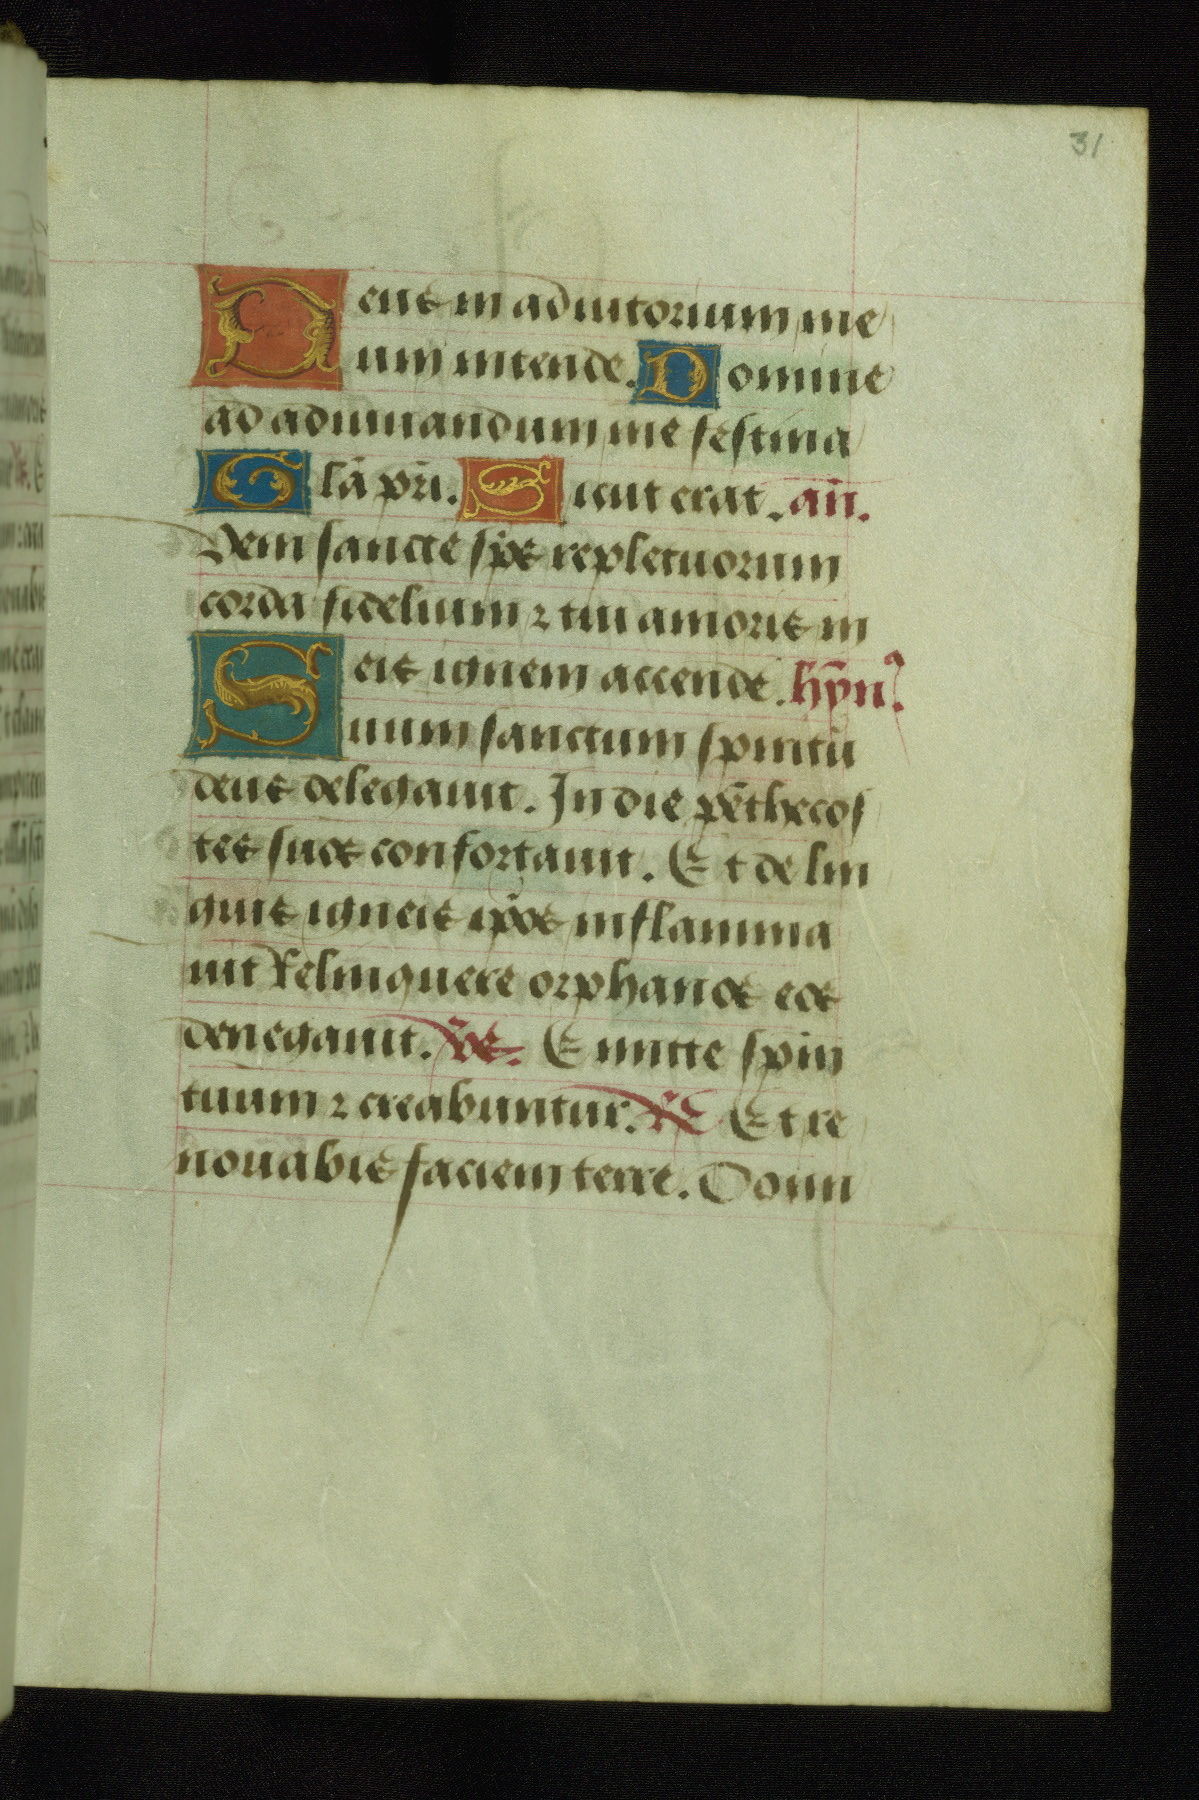 31
Deus in adiutorium me
um intende. Domine
ad adiuuandum me festina
Gl̄a pr̄i. Sicut erat. an̄.
Veni sancte sp̄s reple tuorum
corda fidelium ⁊ tui amoris in
eis ignem accende. hȳnꝰ.
Suum sanctum spiritū
deus delegauit. In die pēthecos
tes suos confortauit. Et de lin
guis igneis ip̄os inflamma
uit Relinquere orphanos eos
denegauit. v̄s. Emitte spiri
tuum ⁊ creabuntur. R̄ Et re
nouabis faciem terre. Domi